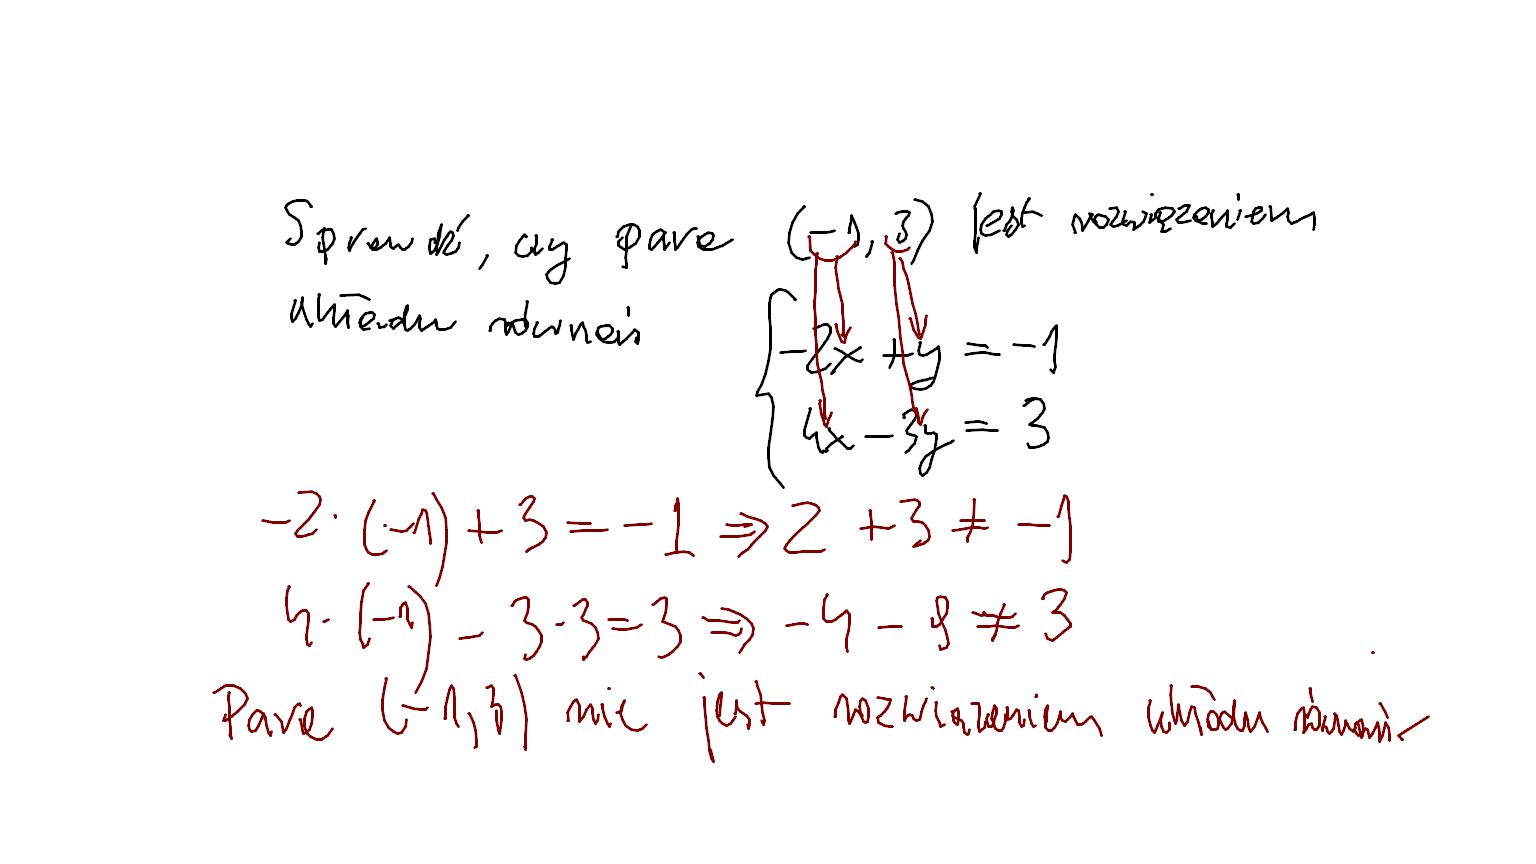 Sprawdź, czy para (-1, 3) jest rozwiązaniem
układu równań
-2x + y = -1
4x - 3y = 3
-2·(-1) + 3 = -1 ⇒ 2 + 3 ≠ -1
4·(-1) - 3·3 = 3 ⇒ -4 - 9 ≠ 3
Para (-1, 3) nie jest rozwiązaniem układu równań